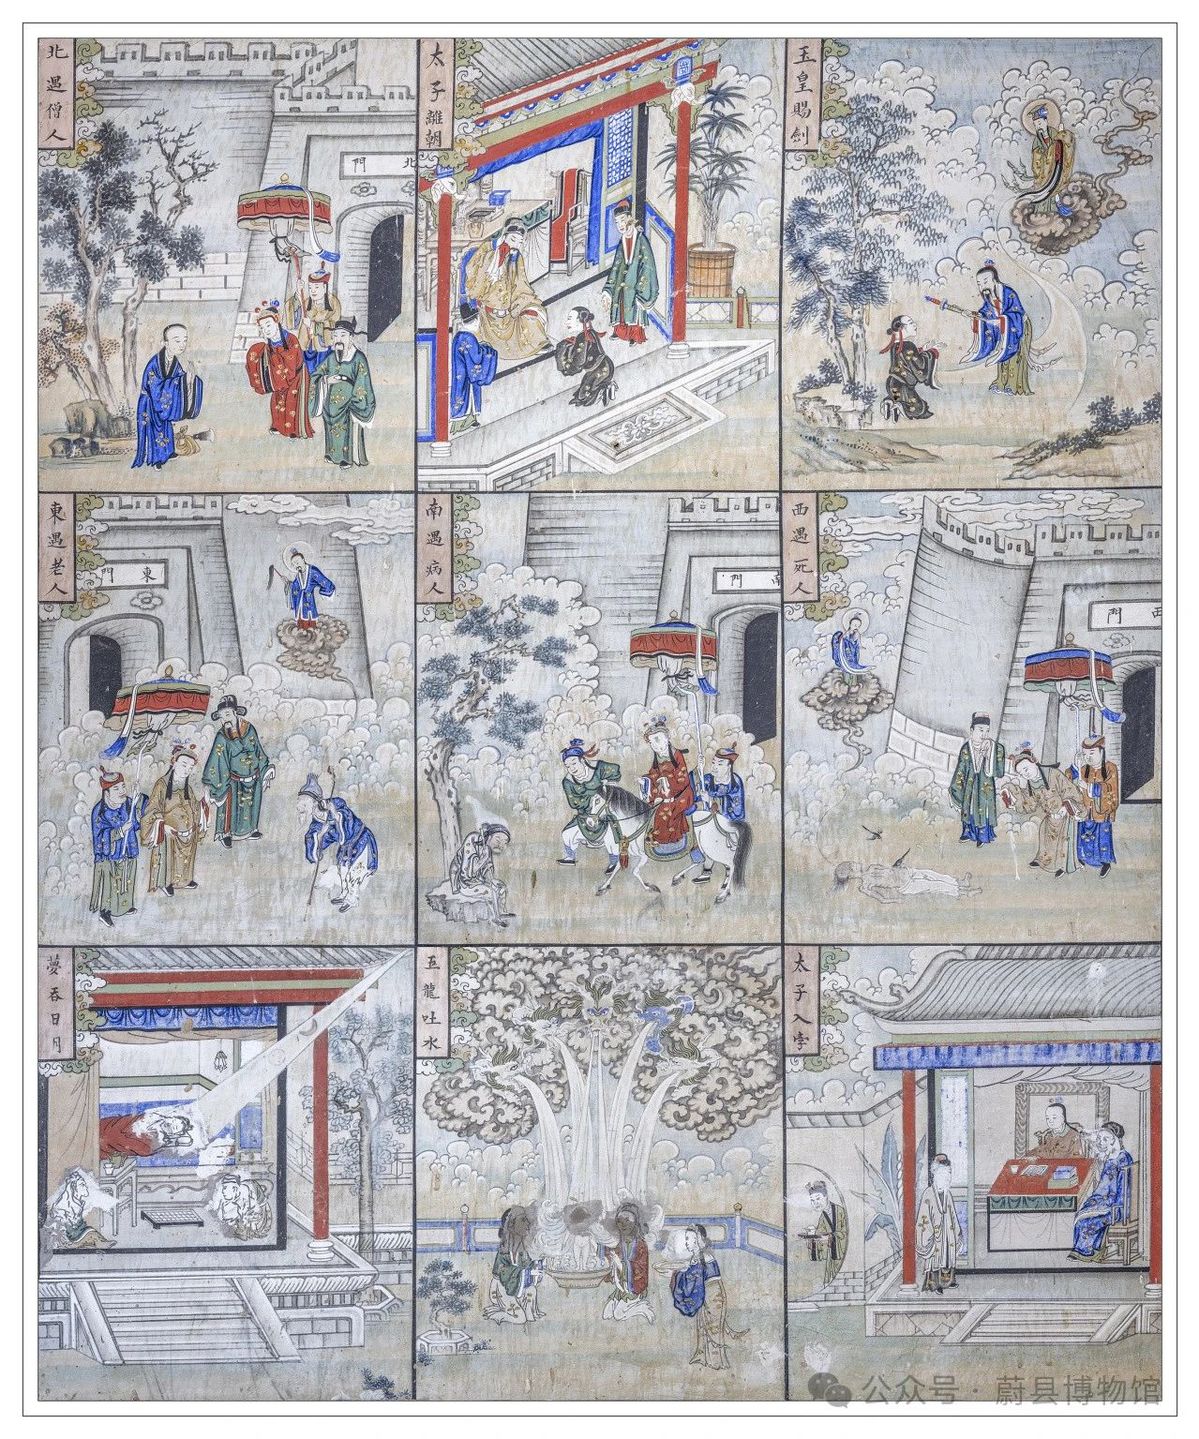 北遇僧人
北門
太子離朝
玉皇賜劍
東遇老人
東門
南遇病人
南門
西遇死人
西門
夢吞日月
五龍吐水
太子入学
公众号·蔚县博物馆